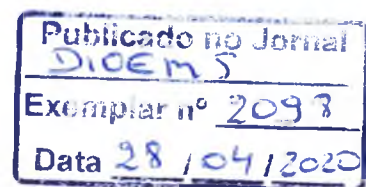 Publicado no Jornal
DIOEMS
Exemplar nº 2093
Data 28 / 04 / 2020